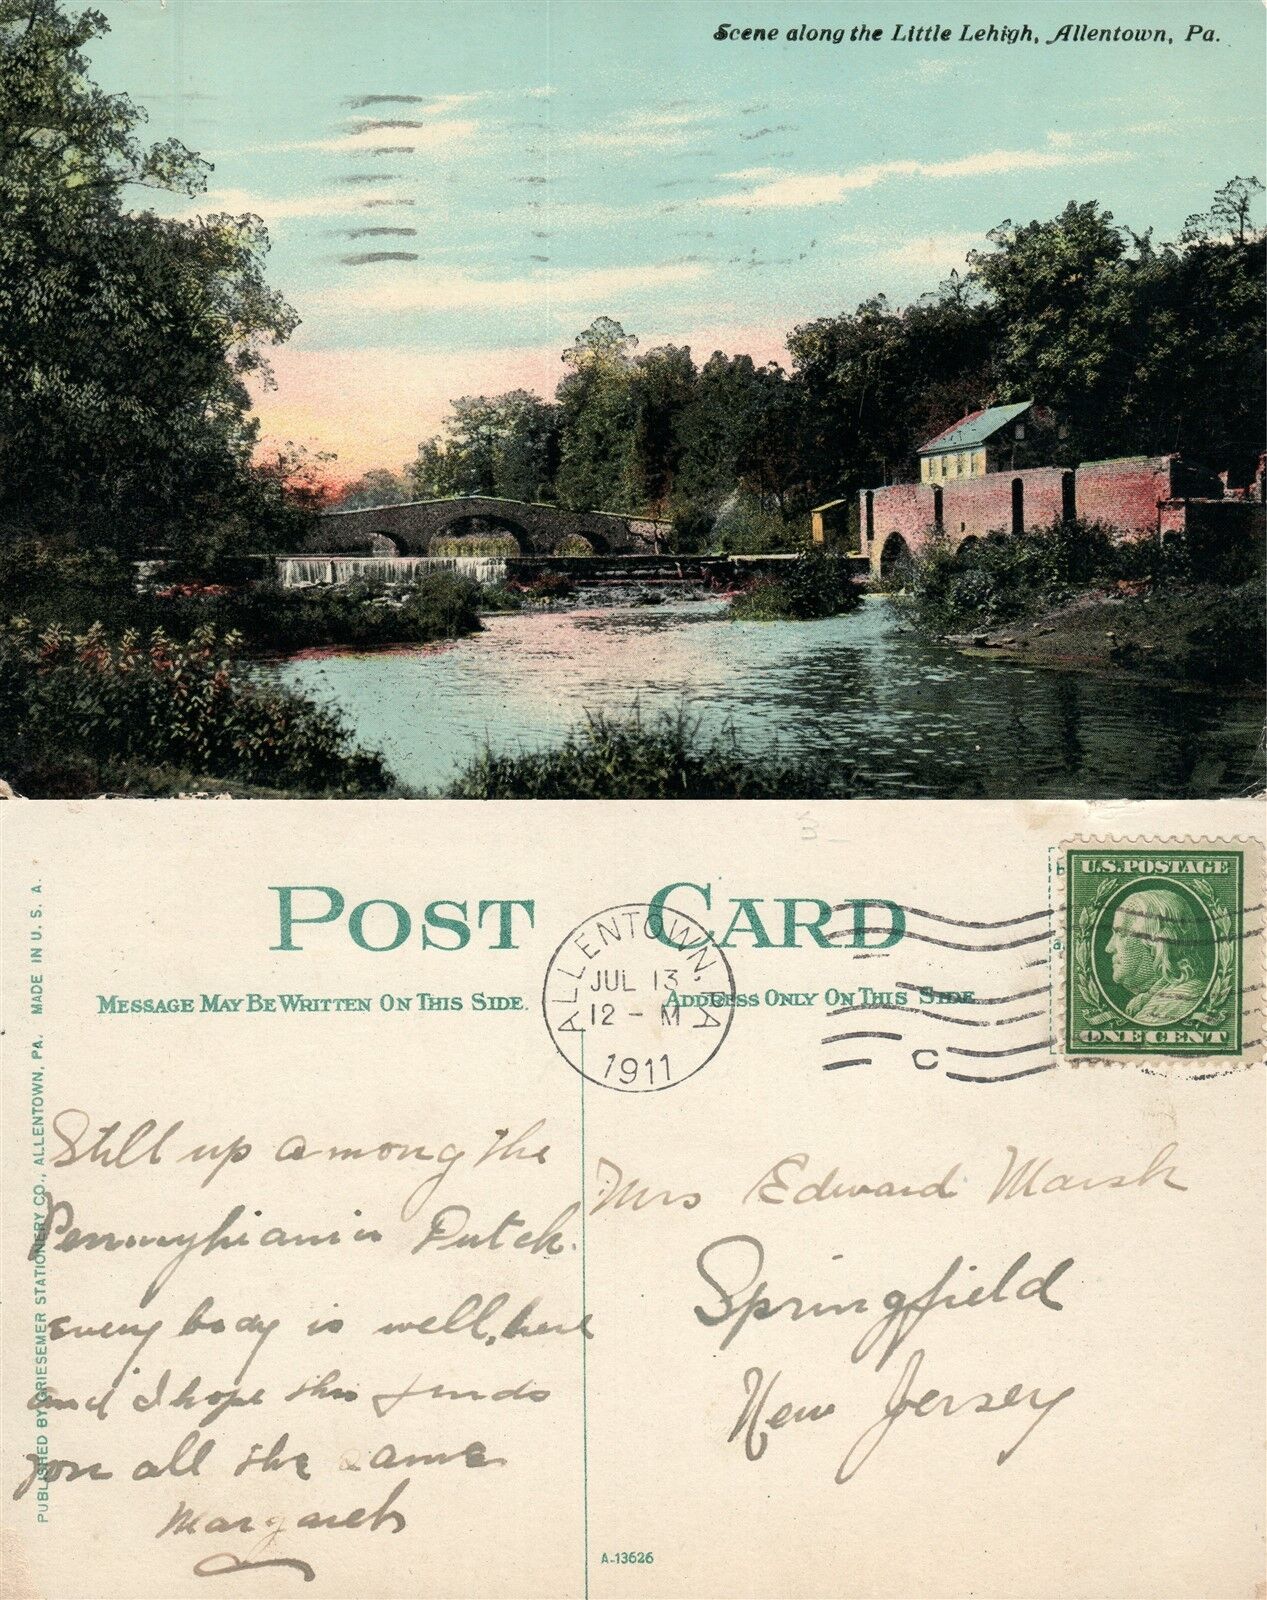 Scene along the Little Lehigh, Allentown, Pa.
POST CARD
MESSAGE MAY BE WRITTEN ON THIS SIDE.
ADDRESS ONLY ON THIS SIDE
ALLENTOWN, PA
JUL 13
12 - M
1911
C
U.S. POSTAGE
ONE CENT
Still up among the
Pennsylvania Dutch.
every body is well, here
and I hope this finds
you all the same
Margaret
Mrs Edward Marsh
Springfield
New Jersey
A-13626
PUBLISHED BY GRIESEMER STATIONERY CO., ALLENTOWN, PA. MADE IN U. S. A.